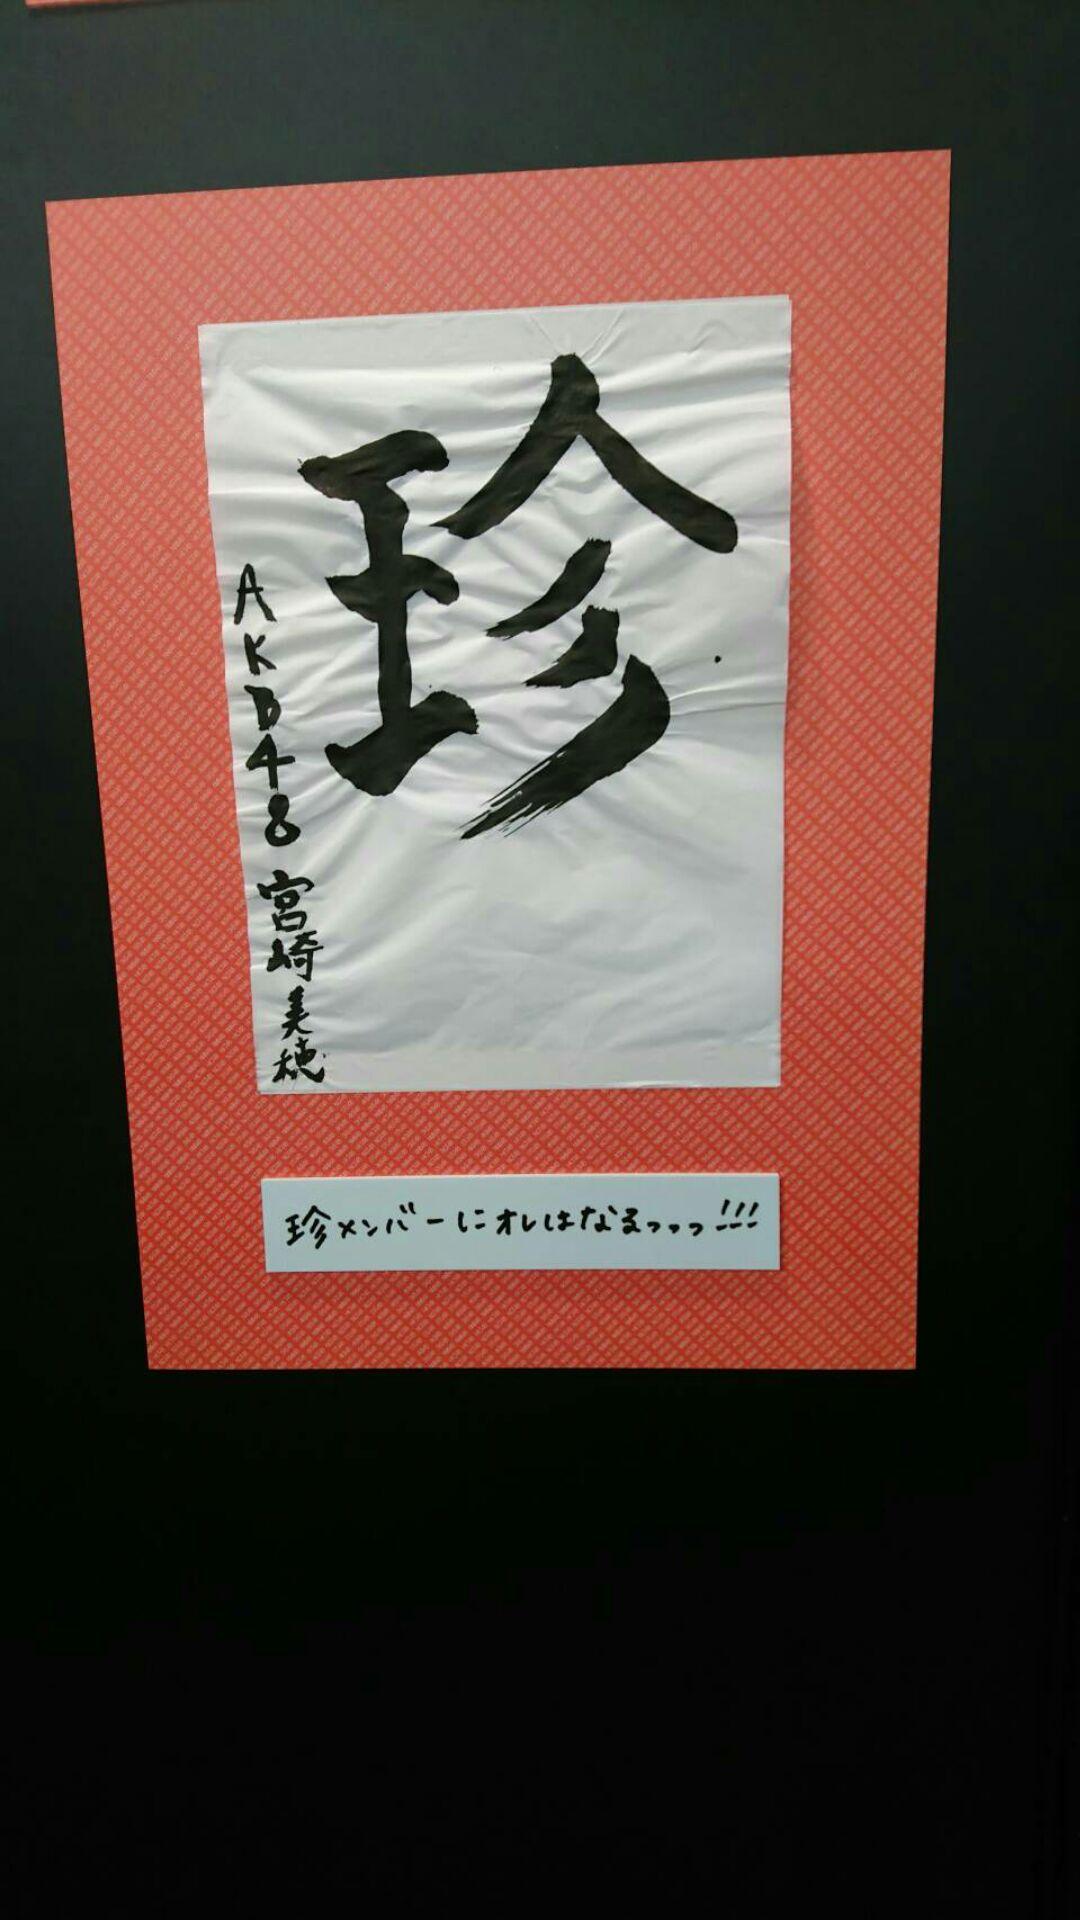 珍
AKB48 宮崎美穂
珍メンバーにオレはなるっっっ!!!